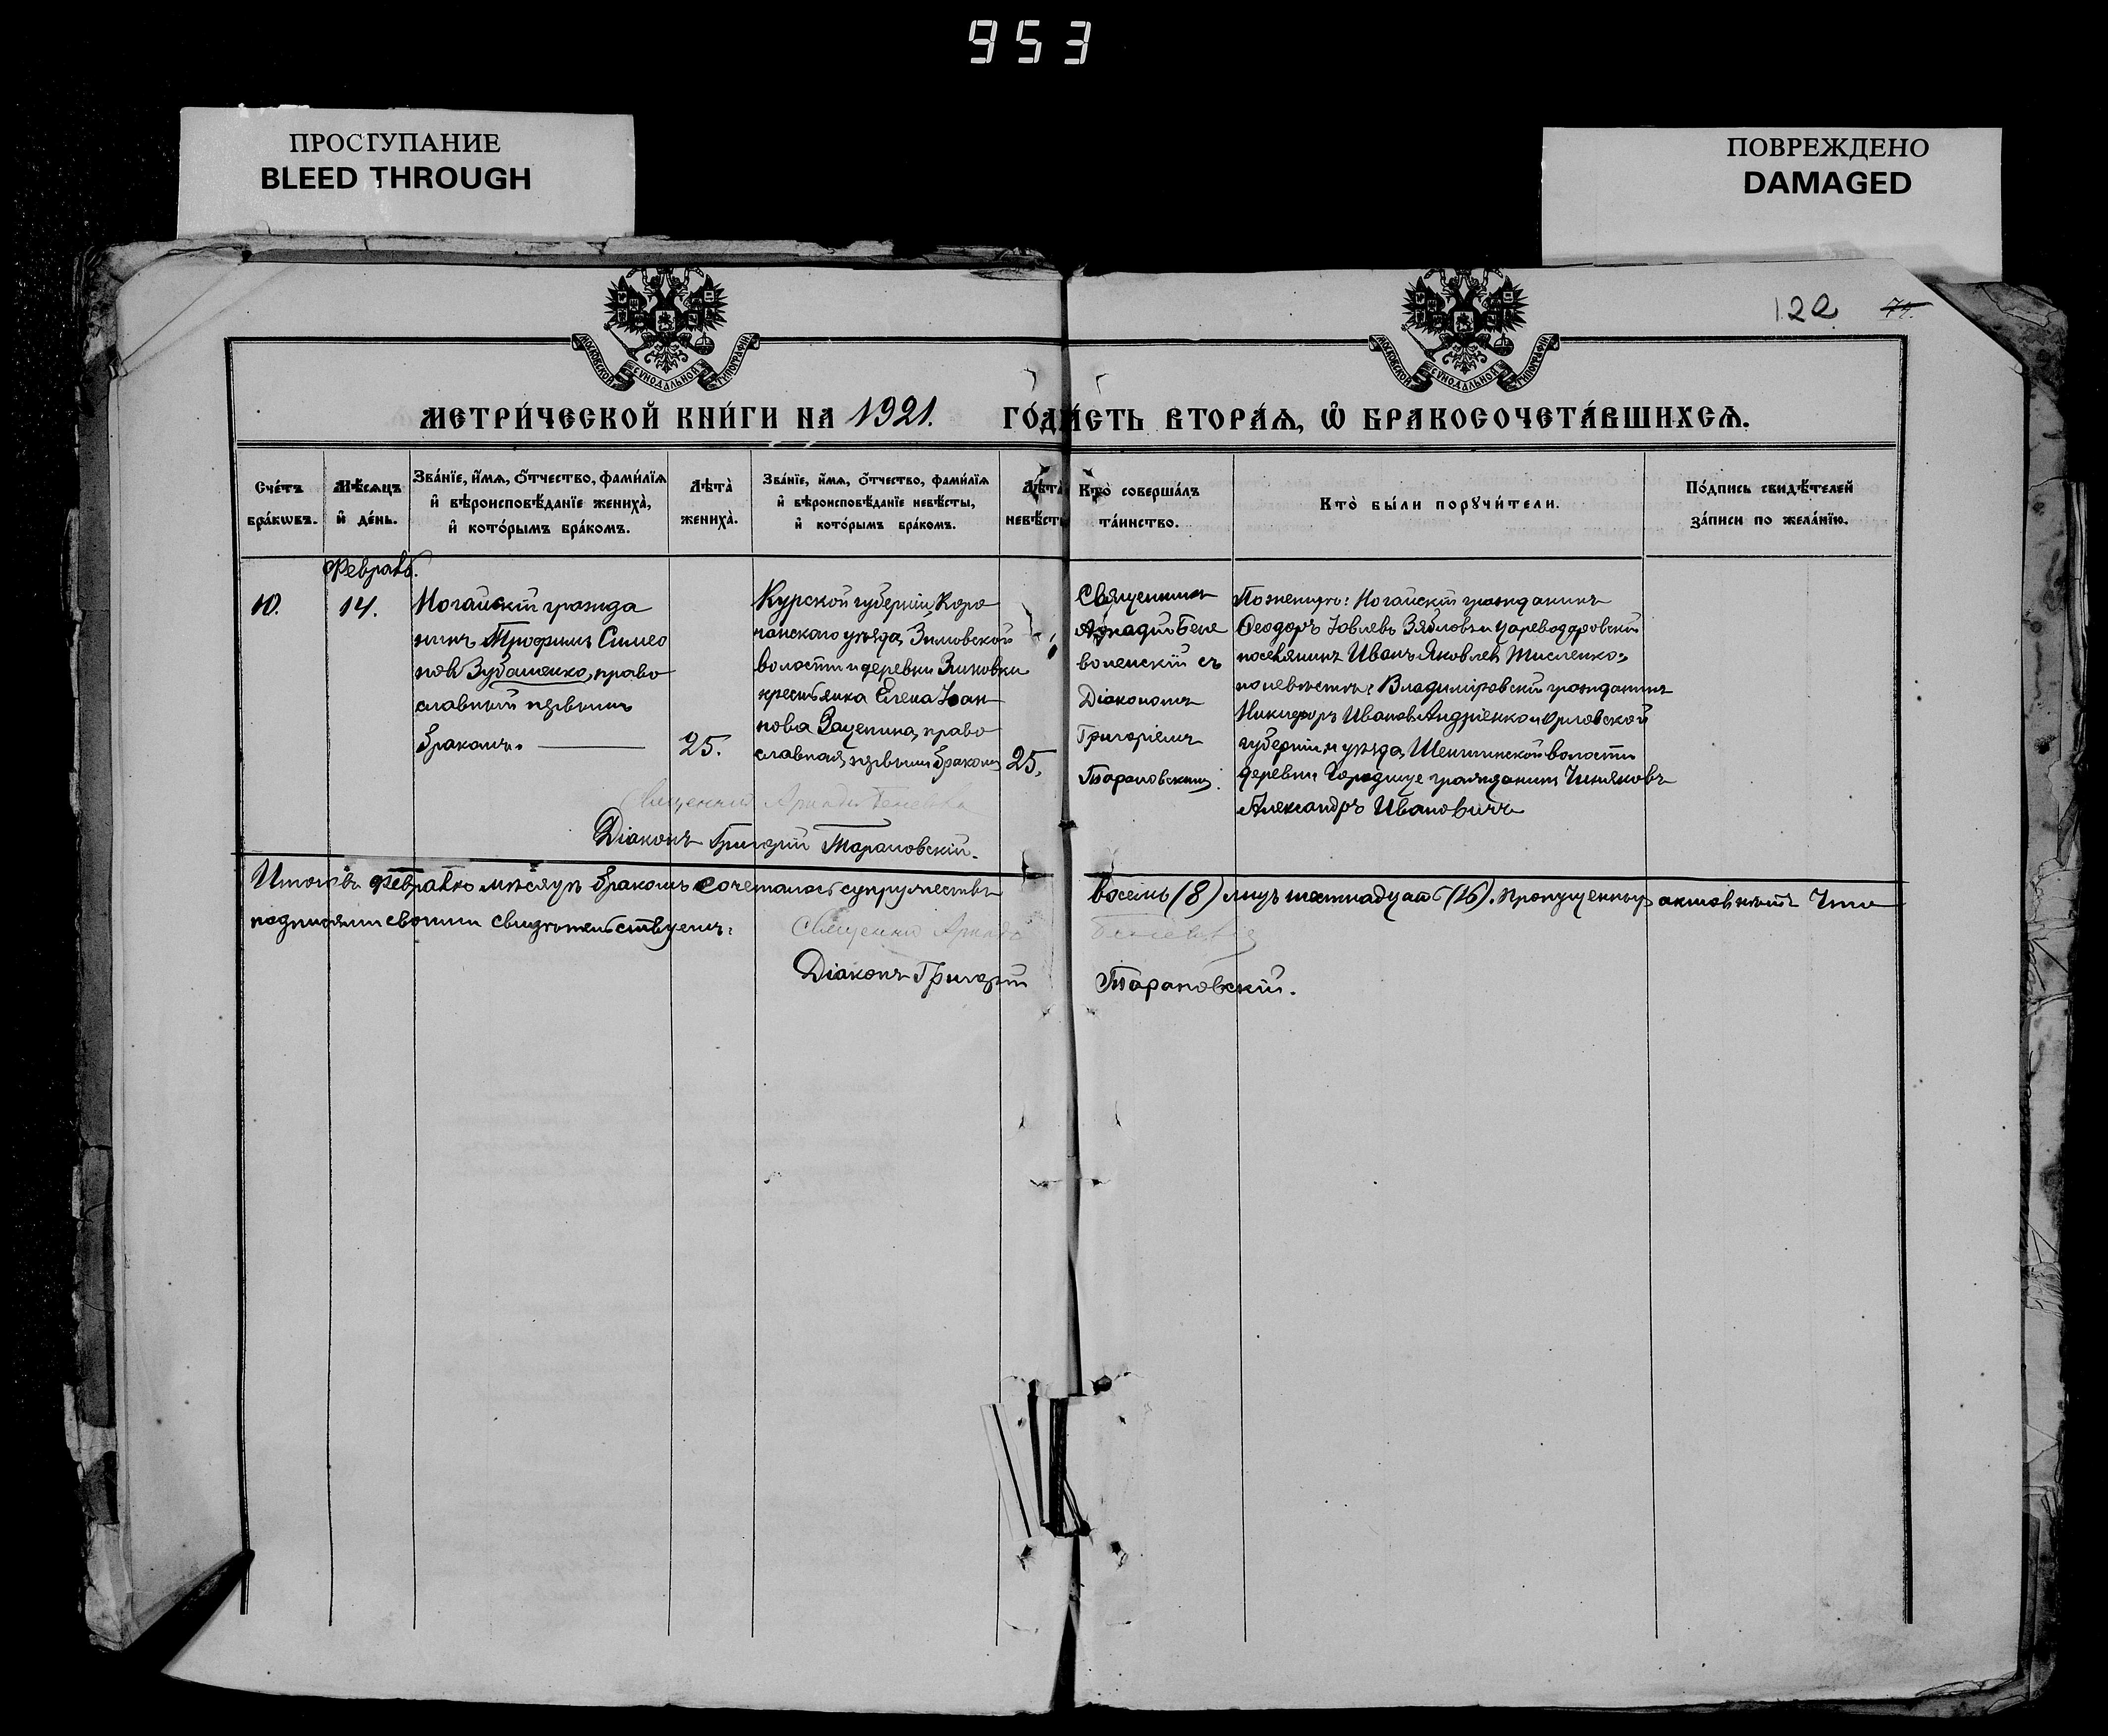 953
ПРОСТУПАНИЕ
BLEED THROUGH
ПОВРЕЖДЕНО
DAMAGED
МОСКОВСКОЙ СѴНОДАЛЬНОЙ ТИПОГРАФІИ
МОСКОВСКОЙ СѴНОДАЛЬНОЙ ТИПОГРАФІИ
122
74.
МЕТРИ́ЧЕСКОЙ КНИ́ГИ НА 1921.
ГО́Д ЧАСТЬ ВТОРА́Я, Ѡ БРАКОСОЧЕТА́ВШИХСЯ.
Сче́тъ бра́кωвъ.
Мѣ́сяцъ и де́нь.
Зва́нїе, и́мя, о́тчество, фами́лїя и вѣроисповѣ́данїе жениха̀, и кото́рымъ бра́комъ.
Лѣта̀ жениха̀.
Зва́нїе, и́мя, о́тчество, фами́лїя и вѣроисповѣ́данїе невѣ́сты, и кото́рымъ бра́комъ.
Лѣта̀ невѣ́сты
Кто̀ соверша́лъ та́инство.
Кто̀ бы́ли порꙋчи́тели.
По́дпись свидѣ́телей за́писи по жела́нїю.
Февраль.
10.
14.
Ногайскій гражда
нинъ Трофимъ Симео
новъ Зубашенко, право
славный первымъ
бракомъ.
25.
Курской губерніи, Коро
чанскаго уѣзда, Зимовской
волости и деревни Зиновки
крестьянка Елена Іоан
нова Зацепина, право
славная, первымъ бракомъ
25.
Священникъ
Аркадій Бене
воленскій съ
Діакономъ
Григоріемъ
Тарановскимъ.
По женихѣ: Ногайскій гражданинъ
Ѳеодоръ Іовлевъ Зябловъ и Цареводаровскій
поселянинъ Иванъ Яковлевъ Мисленко;
по невѣстѣ: Владиміровскій гражданинъ
Никифоръ Ивановъ Андріенко и Орловской
губерніи и уѣзда, волости
деревни Городище гражданинъ
Александръ Ивановичъ
Священникъ Аркадій
Діаконъ Григорій Тарановскій.
Итого въ Февралѣ мѣсяцѣ бракомъ сочеталось супружествъ
восемь (8) лицъ шестнадцать (16). Пропущенныхъ актовъ нѣтъ Что
подписями своими свидѣтельствуемъ:
Священникъ Аркадій
Діаконъ Григорій
Тарановскій.